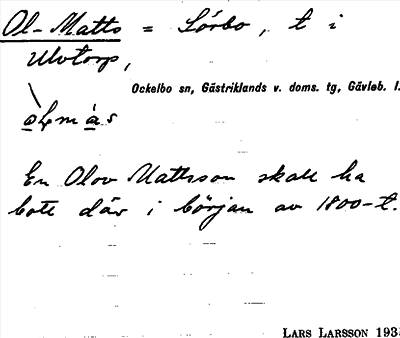 Ol-Matts = Lörbo, t i
Ulvtorp,
Ockelbo sn, Gästriklands v. doms. tg, Gävleb. l.
En Olov Mattsson skall ha
bott där i början av 1800-t.
LARS LARSSON 193